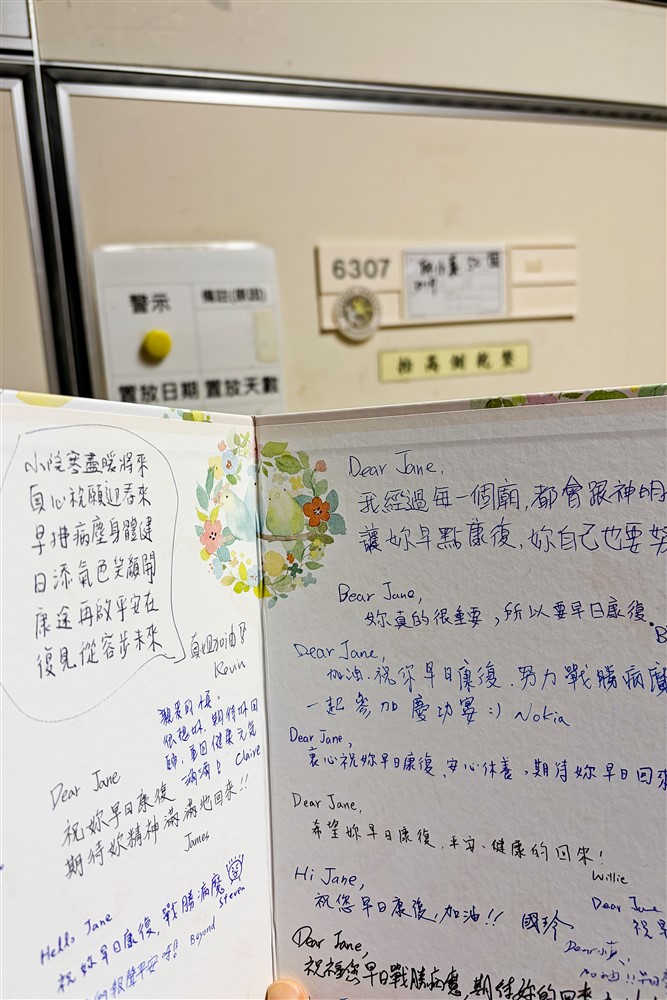 警示
備註(原因)
置放日期 置放天數
6307
抬高側乾墊
小院寒盡暖將來
真心祝願迎春來
早掃病塵身體健
日添氣色笑顏開
康途再啟平安在
復見從容步未來
真心加油!
Kevin
親愛的
很想妳,期待妳回
歸,重回健康元氣
滿滿!
Claire
Dear Jane
祝妳早日康復
期待妳精神滿滿地回來!!
James
Hello Jane
祝妳早日康復,戰勝病魔
Steven
報聲平安呀!! Beyond
Dear Jane,
我經過每一個廟,都會跟神明
讓妳早點康復,妳自己也要努
Dear Jane,
妳真的很重要,所以要早日康復。
Dear Jane,
加油.祝你早日康復.努力戰勝病魔
一起參加慶功宴:) Nokia
Dear Jane,
衷心祝妳早日康復,安心休養,期待妳早日回來
Dear Jane,
希望妳早日康復.平安、健康的回來!
Willie
Hi Jane,
祝您早日康復,加油!! 國玲
Dear Jane
祝早
Dear Jane,
祝福您早日戰勝病魔,期待妳的回來